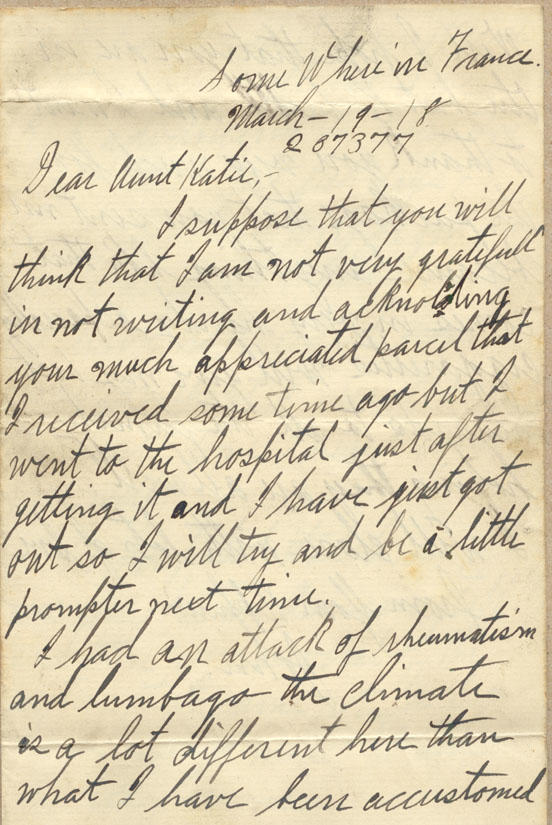 Some Where in France.
March-19-18
287377
Dear Aunt Katie,-
I suppose that you will
think that I am not very gratefull
in not writing and acknolding
your much appreciated parcel that
I received some time ago but I
went to the hospital just after
getting it and I have just got
out so I will try and be a little
prompter next time.
I had an attack of rheumatism
and lumbago the climate
is a lot different here than
what I have been accustomed